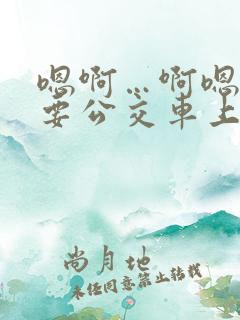 嗯啊…啊嗯
要公交车上
尚月地
未经同意禁止转载